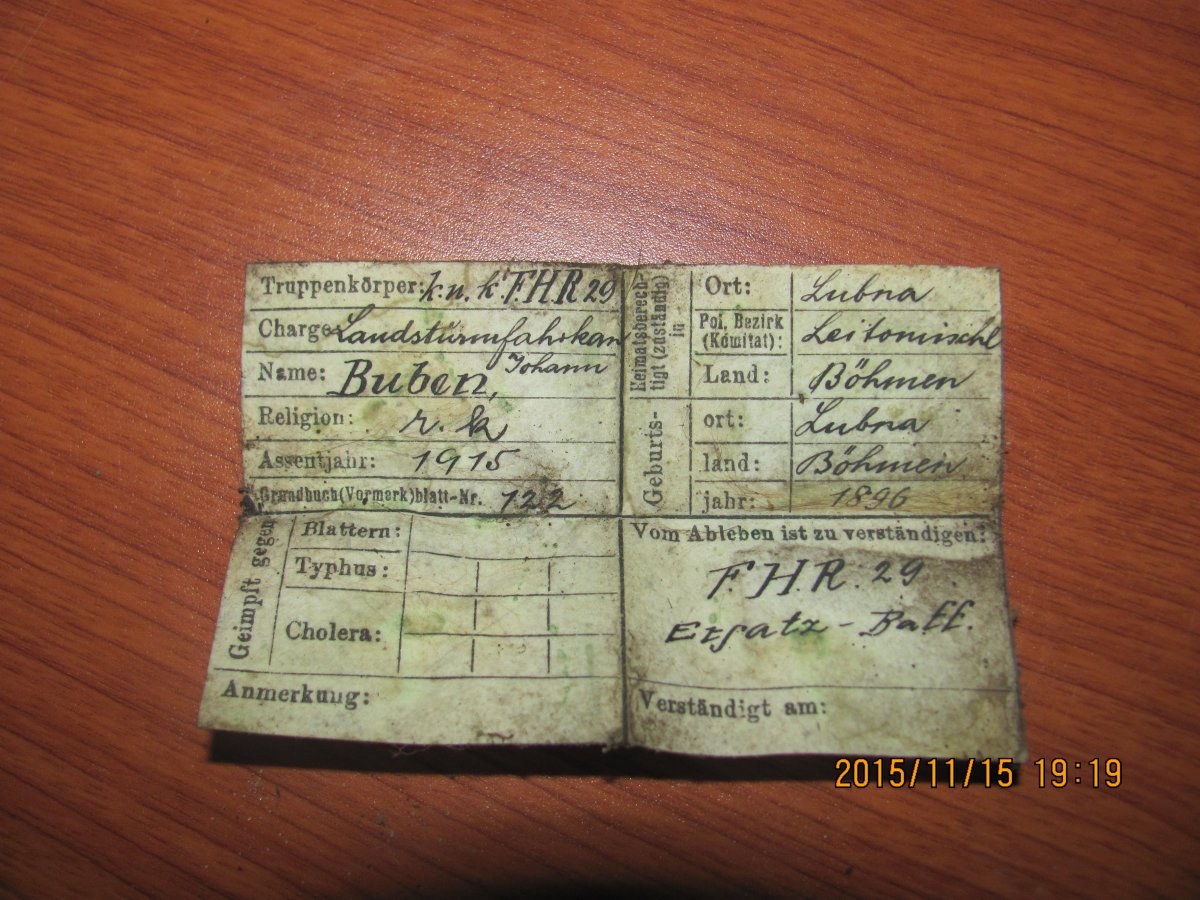 Truppenkörper: k. u. k. F.H.R 29
Charge Landsturmfahrkan
Name: Buben, Johann
Religion: r. k
Assentjahr: 1915
Grundbuch(Vormerk)blatt-Nr. 122
Heimatsberech-
tigt (zuständig)
in
Ort: Lubna
Pol. Bezirk
(Komitat): Leitomischl
Land: Böhmen
Geburts-
ort: Lubna
land: Böhmen
jahr: 1896
Geimpft gegen
Blattern:
Typhus:
Cholera:
Anmerkung:
Vom Ableben ist zu verständigen:
F.H.R. 29
Ersatz-Batt.
Verständigt am:
2015/11/15 19:19